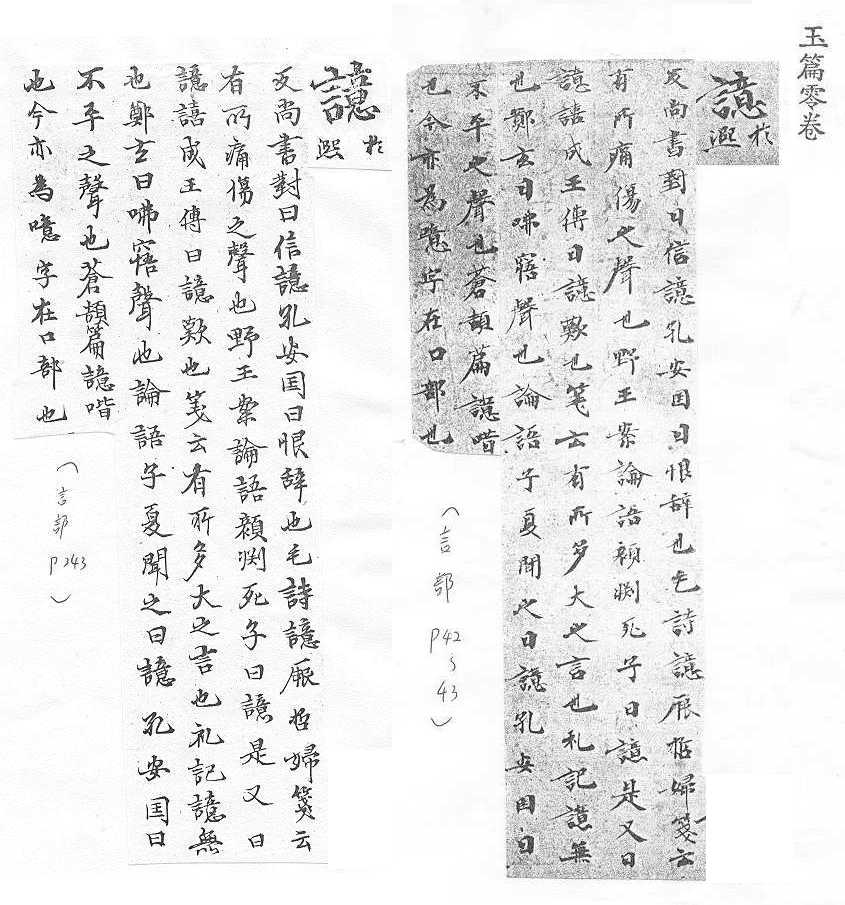 玉篇零卷
譩於熙
反尚書對曰信譩孔安囯曰恨辞也毛詩譩厥悊婦箋云
有所痛傷之聲也野王案論語顔渕死子曰譩是又曰
譩譆成王傳曰譩歎也箋云有所多大之言也礼記譩無
也鄭玄曰咈寤聲也論語子夏聞之曰譩孔安囯曰
不平之聲也蒼頡篇譩唶
也今亦為噫字在口部也
(言部 P42~43)
譩於熙
反尚書對曰信譩孔安囯曰恨辞也毛詩譩厥悊婦箋云
有所痛傷之聲也野王案論語顔渕死子曰譩是又曰
譩譆成王傳曰譩歎也箋云有所多大之言也礼記譩無
也鄭玄曰咈寤聲也論語子夏聞之曰譩孔安囯曰
不平之聲也蒼頡篇譩唶
也今亦為噫字在口部也
(言部 P243)